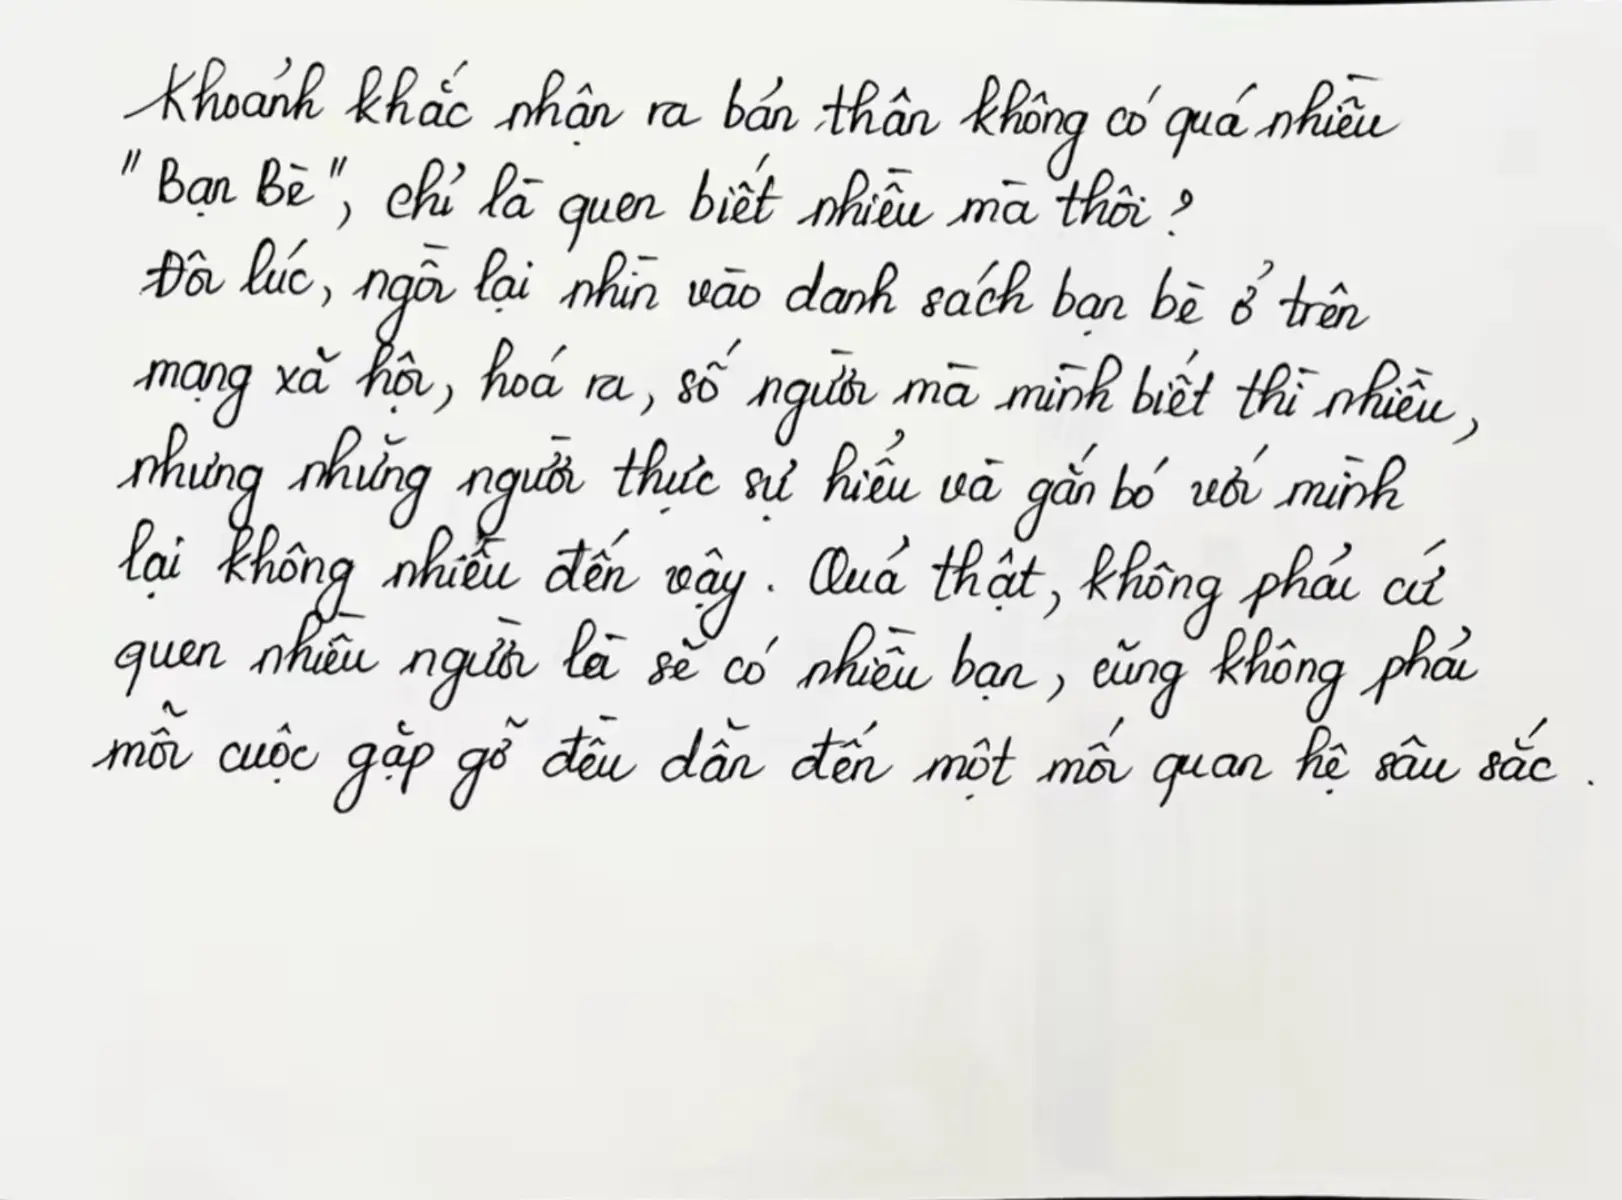 Khoảnh khắc nhận ra bản thân không có quá nhiều
"Bạn Bè", chỉ là quen biết nhiều mà thôi?
Đôi lúc, ngồi lại nhìn vào danh sách bạn bè ở trên
mạng xã hội, hoá ra, số người mà mình biết thì nhiều,
nhưng những người thực sự hiểu và gắn bó với mình
lại không nhiều đến vậy. Quả thật, không phải cứ
quen nhiều người là sẽ có nhiều bạn, cũng không phải
mỗi cuộc gặp gỡ đều dẫn đến một mối quan hệ sâu sắc.